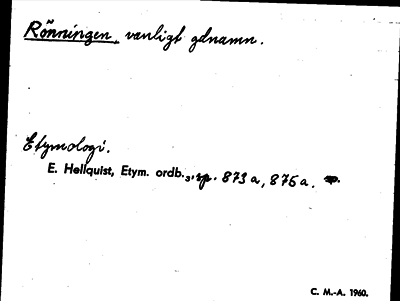 Rönningen, vanligt gdnamn.
Etymologi.
E. Hellquist, Etym. ordb.3, sp. 873 a, 876 a.
C. M.-A. 1960.